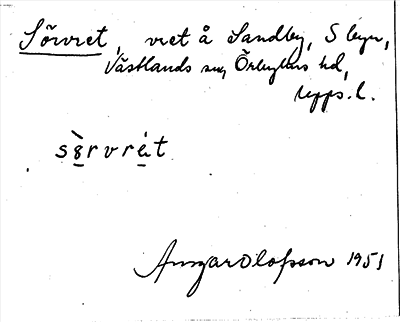 Sörvret, vret å Sandby, S byn,
Västlands sn, Örbyhus hd,
Upps. l.
sö̀rvrét
Ansgar Olofsson 1951